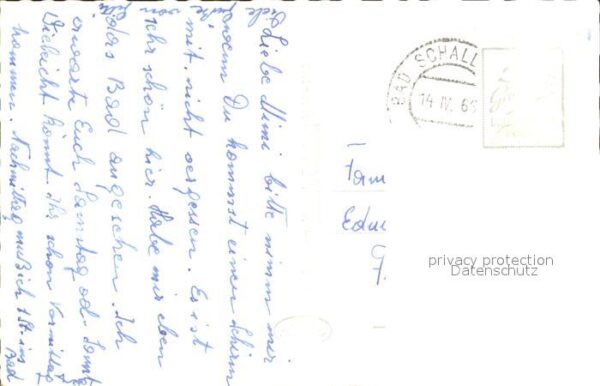 Liebe Mimi bitte nimm mir
Du kommst einen Schirm
mit. nicht vergessen. Es ist
sehr schön hier. Habe mir eben
Bad angesehen. Ich
erwarte Euch Samstag od. Sonnt
Vielleicht könnt Ihr schon Vormittag
kommen. Nachmittag muß ich 1 St. ins
Bad
BAD SCHALL
14. IV. 6
Fam
Edu
privacy protection
Datenschutz